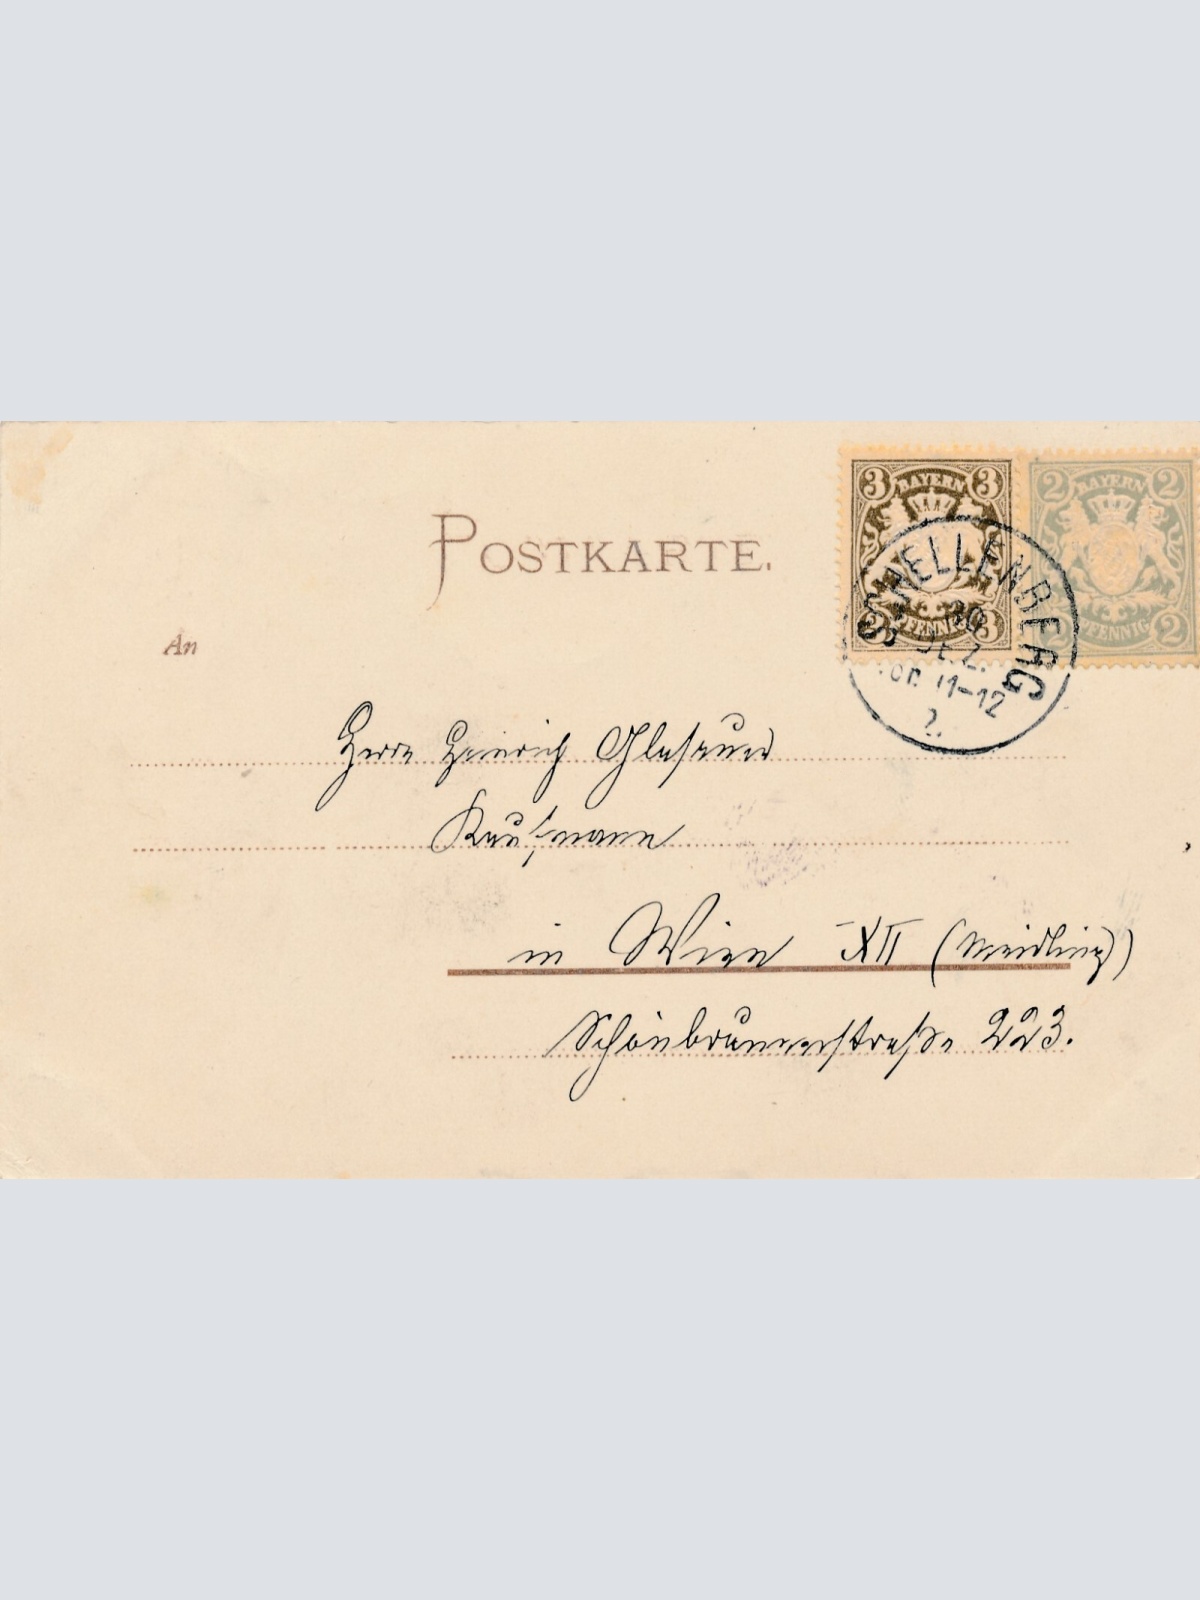 3 BAYERN 3
2 BAYERN 2
POSTKARTE.
SCHELLENBERG
3 PFENNIG 3
2 PFENNIG 2
30
DEZ.
Vor. 11-12
An
Herrn Heinrich
Kaufmann
in Wien XII (Meidling)
Schönbrunnerstraße 223.